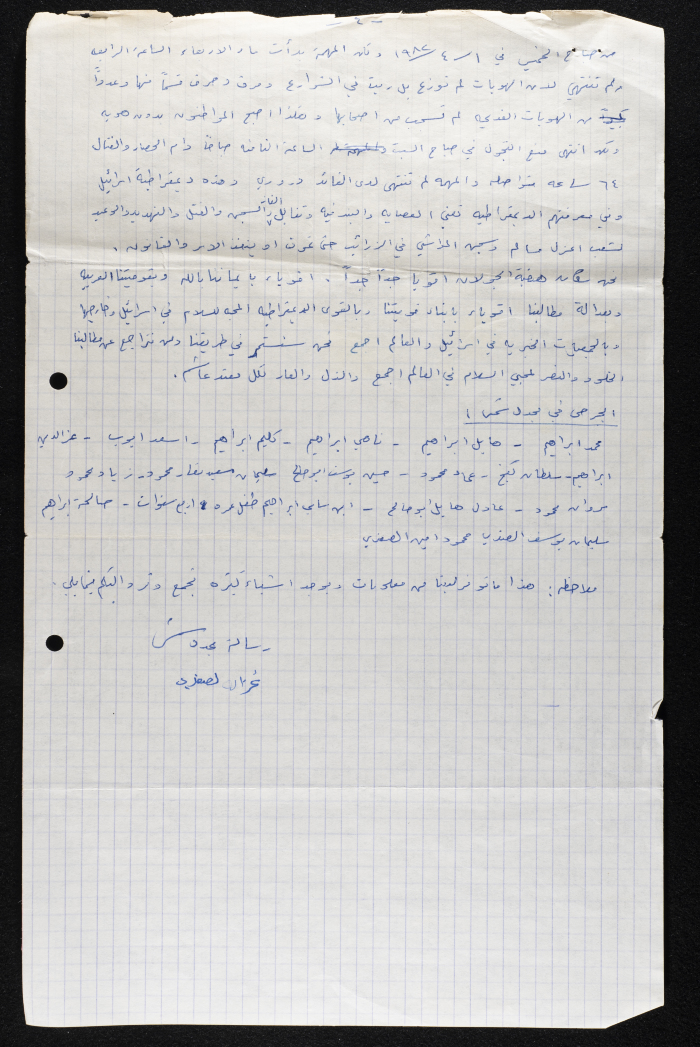 - ٤ -
من صباح الخميس في ١/٤/١٩٨٢ وكانت المهمة بدأت مساء الاربعاء الساعة الرابعه
ولم تنتهي لان الهويات لم توزع بل رميت في الشوارع ومزق وحرق قسماً منها وعدداً
من الهويات القديمه لم تسحب من اصحابها وهكذا اصبح المواطنون بدون هويه
وكان انتهى منع التجول في صباح السبت الساعة الثامنه صباحاً دام الحصار والقتال
٦٤ ساعه متواصله والمهمه لم تنتهي لدى القائد دروري وهذه ديمقراطية اسرائيل
وفي معرفتهم الديمقراطيه تعني العصايه والبندقيه وقنابل الغاز والسجن والقتل والتهديد والوعيد
لشعب اعزل مسالم وسجن المواشي في الزرائب حتى تموت او ينفذ الامر والقانون.
نحن سكان هضبة الجولان اقويا جداً جداً. اقوياء بايماننا بالله وبقوميتنا العربيه
وبعدالة مطالبنا اقوياء بابناء قوميتنا وبالقوى الديمقراطيه المحبه للسلام في اسرائيل وخارجها
وبالجمعيات الخيريه في اسرائيل والعالم اجمع نحن سنستمر في طريقنا ولن نتراجع عن مطالبنا
الخلود والنصر لمحبي السلام في العالم اجمع والذل والعار لكل معتد غاشم.
الجرحى في مجدل شمس:
محمد ابراهيم - هايل ابراهيم - ناهي ابراهيم - كليم ابراهيم - اسعد ايوب - عزالدين
ابراهيم - سلطان كنج - عماد محمود - حسين يوسف ابوصالح سليمان سعيد نفاز محمود - زياد محمود
مروان محمود - عادل هايل ابوصالح - ابن سامي ابراهيم طفل عمره ٤ اربع سنوات - صالحة ابراهيم
سليمان يوسف الصفدي محمود امين الصفدي
ملاحظه: هذا ما توفر لدينا من معلومات ويوجد اشياء كثيره تجمع وترد اليكم فيما يلي.
رسالة مجدل شمس
الصفدي